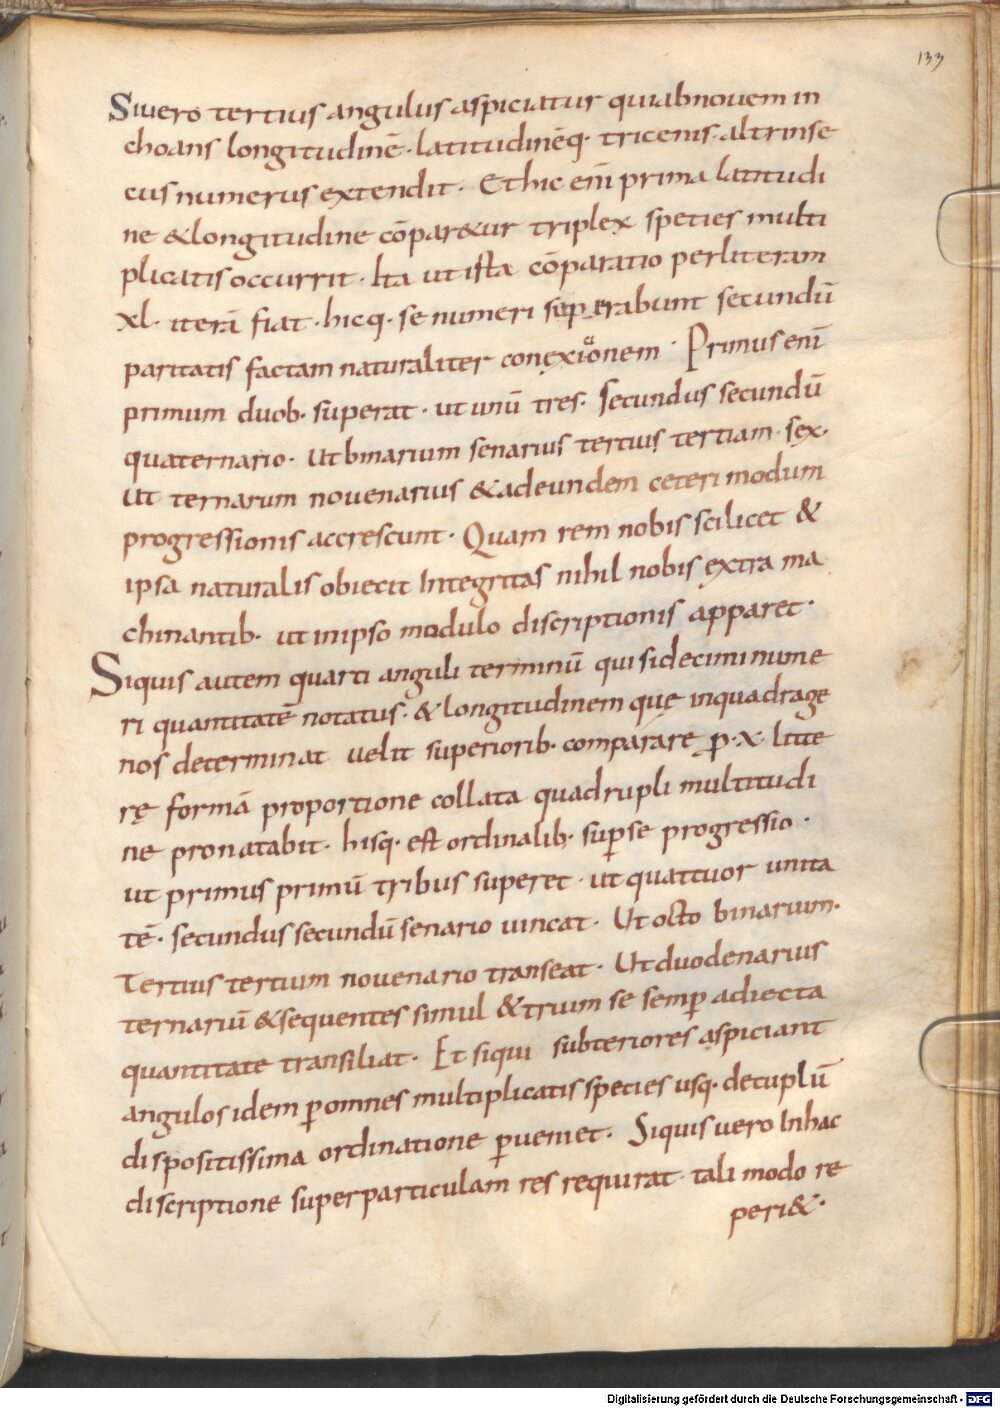 133
Siuero tertius angulus aspiciatur qui ab nouem in
choans longitudinē · latitudinēq· tricenis · altrinse
cus numerus extendit · Et hic eni̅ prima latitudi
ne & longitudine cōpar&ur triplex species multi
plicatis occurrit · Ita ut ista cōparatio per literam
xl · iterā fiat · hicq· se numeri superabunt secundū
paritatis factam naturaliter conęxionem · Primus eni̅
primum duob· superat · ut unū tres · Secundus secundū
quaternario · ut binarium senarius tertius tertiam · sex·
ut ternarum nouenarius & ad eundem ceteri modum
progressionis accrescunt · Quam rem nobis scilicet &
ipsa naturalis obiecit Integritas nihil nobis extra ma
chinantib· ut in ipso modulo discriptionis apparet ·
Siquis autem quarti anguli terminū qui sidecimi nume
ri quantitatē notatus · & longitudinem quę in quadrage
nos determinat uelit superiorib· comparare p̱ · x · litte
rę formā proportione collata quadrupli multitudi
ne pronatabit · hisq· est ordinalib· sup̱ se progressio ·
ut primus primū tribus superet · ut quattuor unita
tē · secundus secundū senario uincat · Ut octo binarium ·
Tertius tertium nouenario transeat · Ut duodenarius
ternariū & sequentes simul & trium se semp̱ adiecta
quantitate transiliat · Et siqui subteriores aspiciant
angulos idem p̱ omnes multiplicatis species usq· decuplū
dispositissima ordinatione p̱ueniet · Siquis uero In hac
discriptione superparticulam res requirat · tali modo re
peri& ·
Digitalisierung gefördert durch die Deutsche Forschungsgemeinschaft - DFG